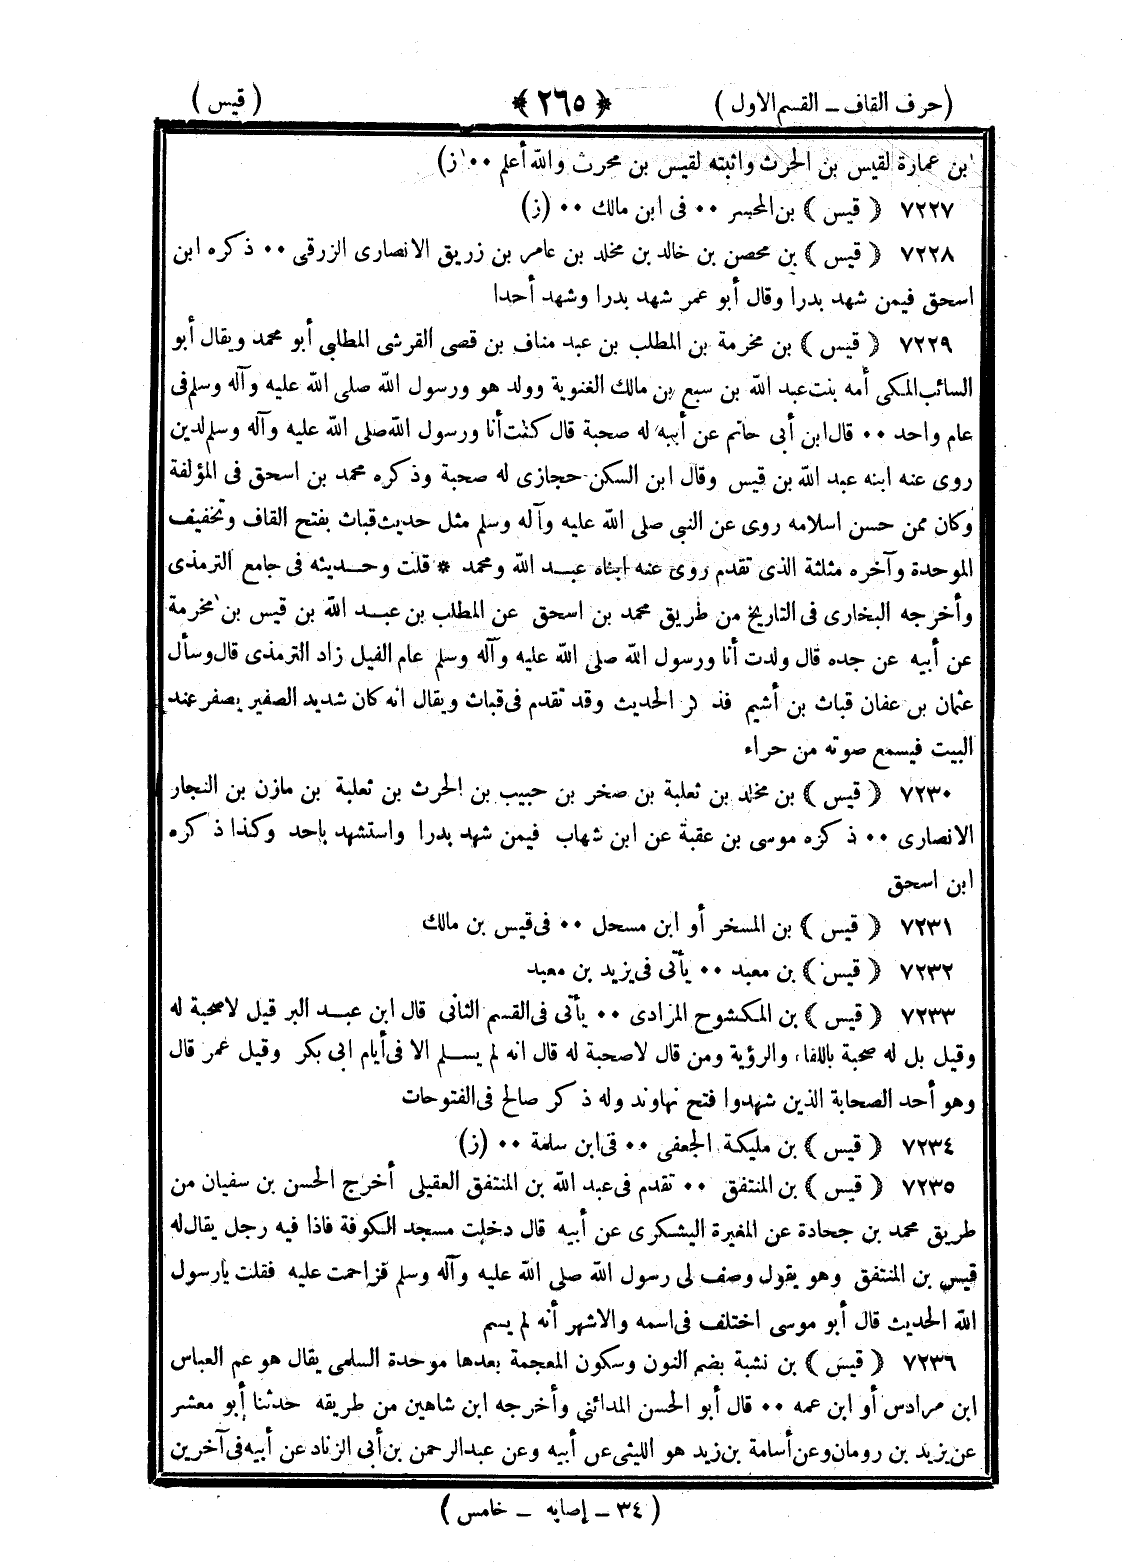 (حرف القاف ــ القسم الاول) ﴿ ٢٦٥ ﴾ (قيس)
ابن عمارة لقيس بن الحرث واثبته لقيس بن محرث والله أعلم ٠٠ (ز)
٧٢٢٧ ﴿ قيس ﴾ بن المحسر ٠٠ فى ابن مالك ٠٠ (ز)
٧٢٢٨ ﴿ قيس ﴾ بن محصن بن خالد بن مخلد بن عامر بن زريق الانصارى الزرقى ٠٠ ذكره ابن
اسحق فيمن شهد بدرا وقال أبو عمر شهد بدرا وشهد أحدا
٧٢٢٩ ﴿ قيس ﴾ بن مخرمة بن المطلب بن عبد مناف بن قصى القرشى المطلبي أبو محمد ويقال أبو
السائب المكى أمه بنت عبد الله بن سبع بن مالك الغنوية وولد هو ورسول الله صلى الله عليه وآله وسلم فى
عام واحد ٠٠ قال ابن أبى حاتم عن أبيه له صحبة قال كنت أنا ورسول الله صلى الله عليه وآله وسلم لدين
روى عنه ابنه عبد الله بن قيس وقال ابن السكن حجازى له صحبة وذكره محمد بن اسحق فى المؤلفة
وكان ممن حسن اسلامه روى عن النبي صلى الله عليه وآله وسلم مثل حديث قباث بفتح القاف وتخفيف
الموحدة وآخره مثلثة الذى تقدم روى عنه ابناه عبد الله ومحمد * قلت وحديثه فى جامع الترمذى
وأخرجه البخارى فى التاريخ من طريق محمد بن اسحق عن المطلب بن عبد الله بن قيس بن مخرمة
عن أبيه عن جده قال ولدت أنا ورسول الله صلى الله عليه وآله وسلم عام الفيل زاد الترمذى قال وسأل
عثمان بن عفان قباث بن أشيم فذكر الحديث وقد تقدم فى قباث ويقال انه كان شديد الصفير يصفر عند
البيت فيسمع صوته من حراء
٧٢٣٠ ﴿ قيس ﴾ بن مخلد بن ثعلبة بن صخر بن حبيب بن الحرث بن ثعلبة بن مازن بن النجار
الانصارى ٠٠ ذكره موسى بن عقبة عن ابن شهاب فيمن شهد بدرا واستشهد باحد وكذا ذكره
ابن اسحق
٧٢٣١ ﴿ قيس ﴾ بن المسخر أو ابن مسحل ٠٠ فى قيس بن مالك
٧٢٣٢ ﴿ قيس ﴾ بن معبد ٠٠ يأتى فى يزيد بن معبد
٧٢٣٣ ﴿ قيس ﴾ بن المكشوح المرادى ٠٠ يأتى فى القسم الثانى قال ابن عبد البر قيل لا صحبة له
وقيل بل له صحبة باللقاء والرؤية ومن قال لا صحبة له قال انه لم يسلم الا فى أيام ابى بكر وقيل عمر قال
وهو أحد الصحابة الذين شهدوا فتح نهاوند وله ذكر صالح فى الفتوحات
٧٢٣٤ ﴿ قيس ﴾ بن مليكة الجعفى ٠٠ فى ابن سلمة ٠٠ (ز)
٧٢٣٥ ﴿ قيس ﴾ بن المنتفق ٠٠ تقدم فى عبد الله بن المنتفق العقيلى أخرج الحسن بن سفيان من
طريق محمد بن جحادة عن المغيرة اليشكرى عن أبيه قال دخلت مسجد الكوفة فاذا فيه رجل يقال له
قيس بن المنتفق وهو يقول وصف لى رسول الله صلى الله عليه وآله وسلم فزاحمت عليه فقلت يارسول
الله الحديث قال أبو موسى اختلف فى اسمه والاشهر أنه لم يسم
٧٢٣٦ ﴿ قيس ﴾ بن نشبة بضم النون وسكون المعجمة بعدها موحدة السلمى يقال هو عم العباس
ابن مرادس أو ابن عمه ٠٠ قال أبو الحسن المدائني وأخرجه ابن شاهين من طريقه حدثنا أبو معشر
عن يزيد بن رومان وعن أسامة بن زيد هو الليثى عن أبيه وعن عبد الرحمن بن أبى الزناد عن أبيه فى آخرين
(٣٤ ــ إصابه ــ خامس)